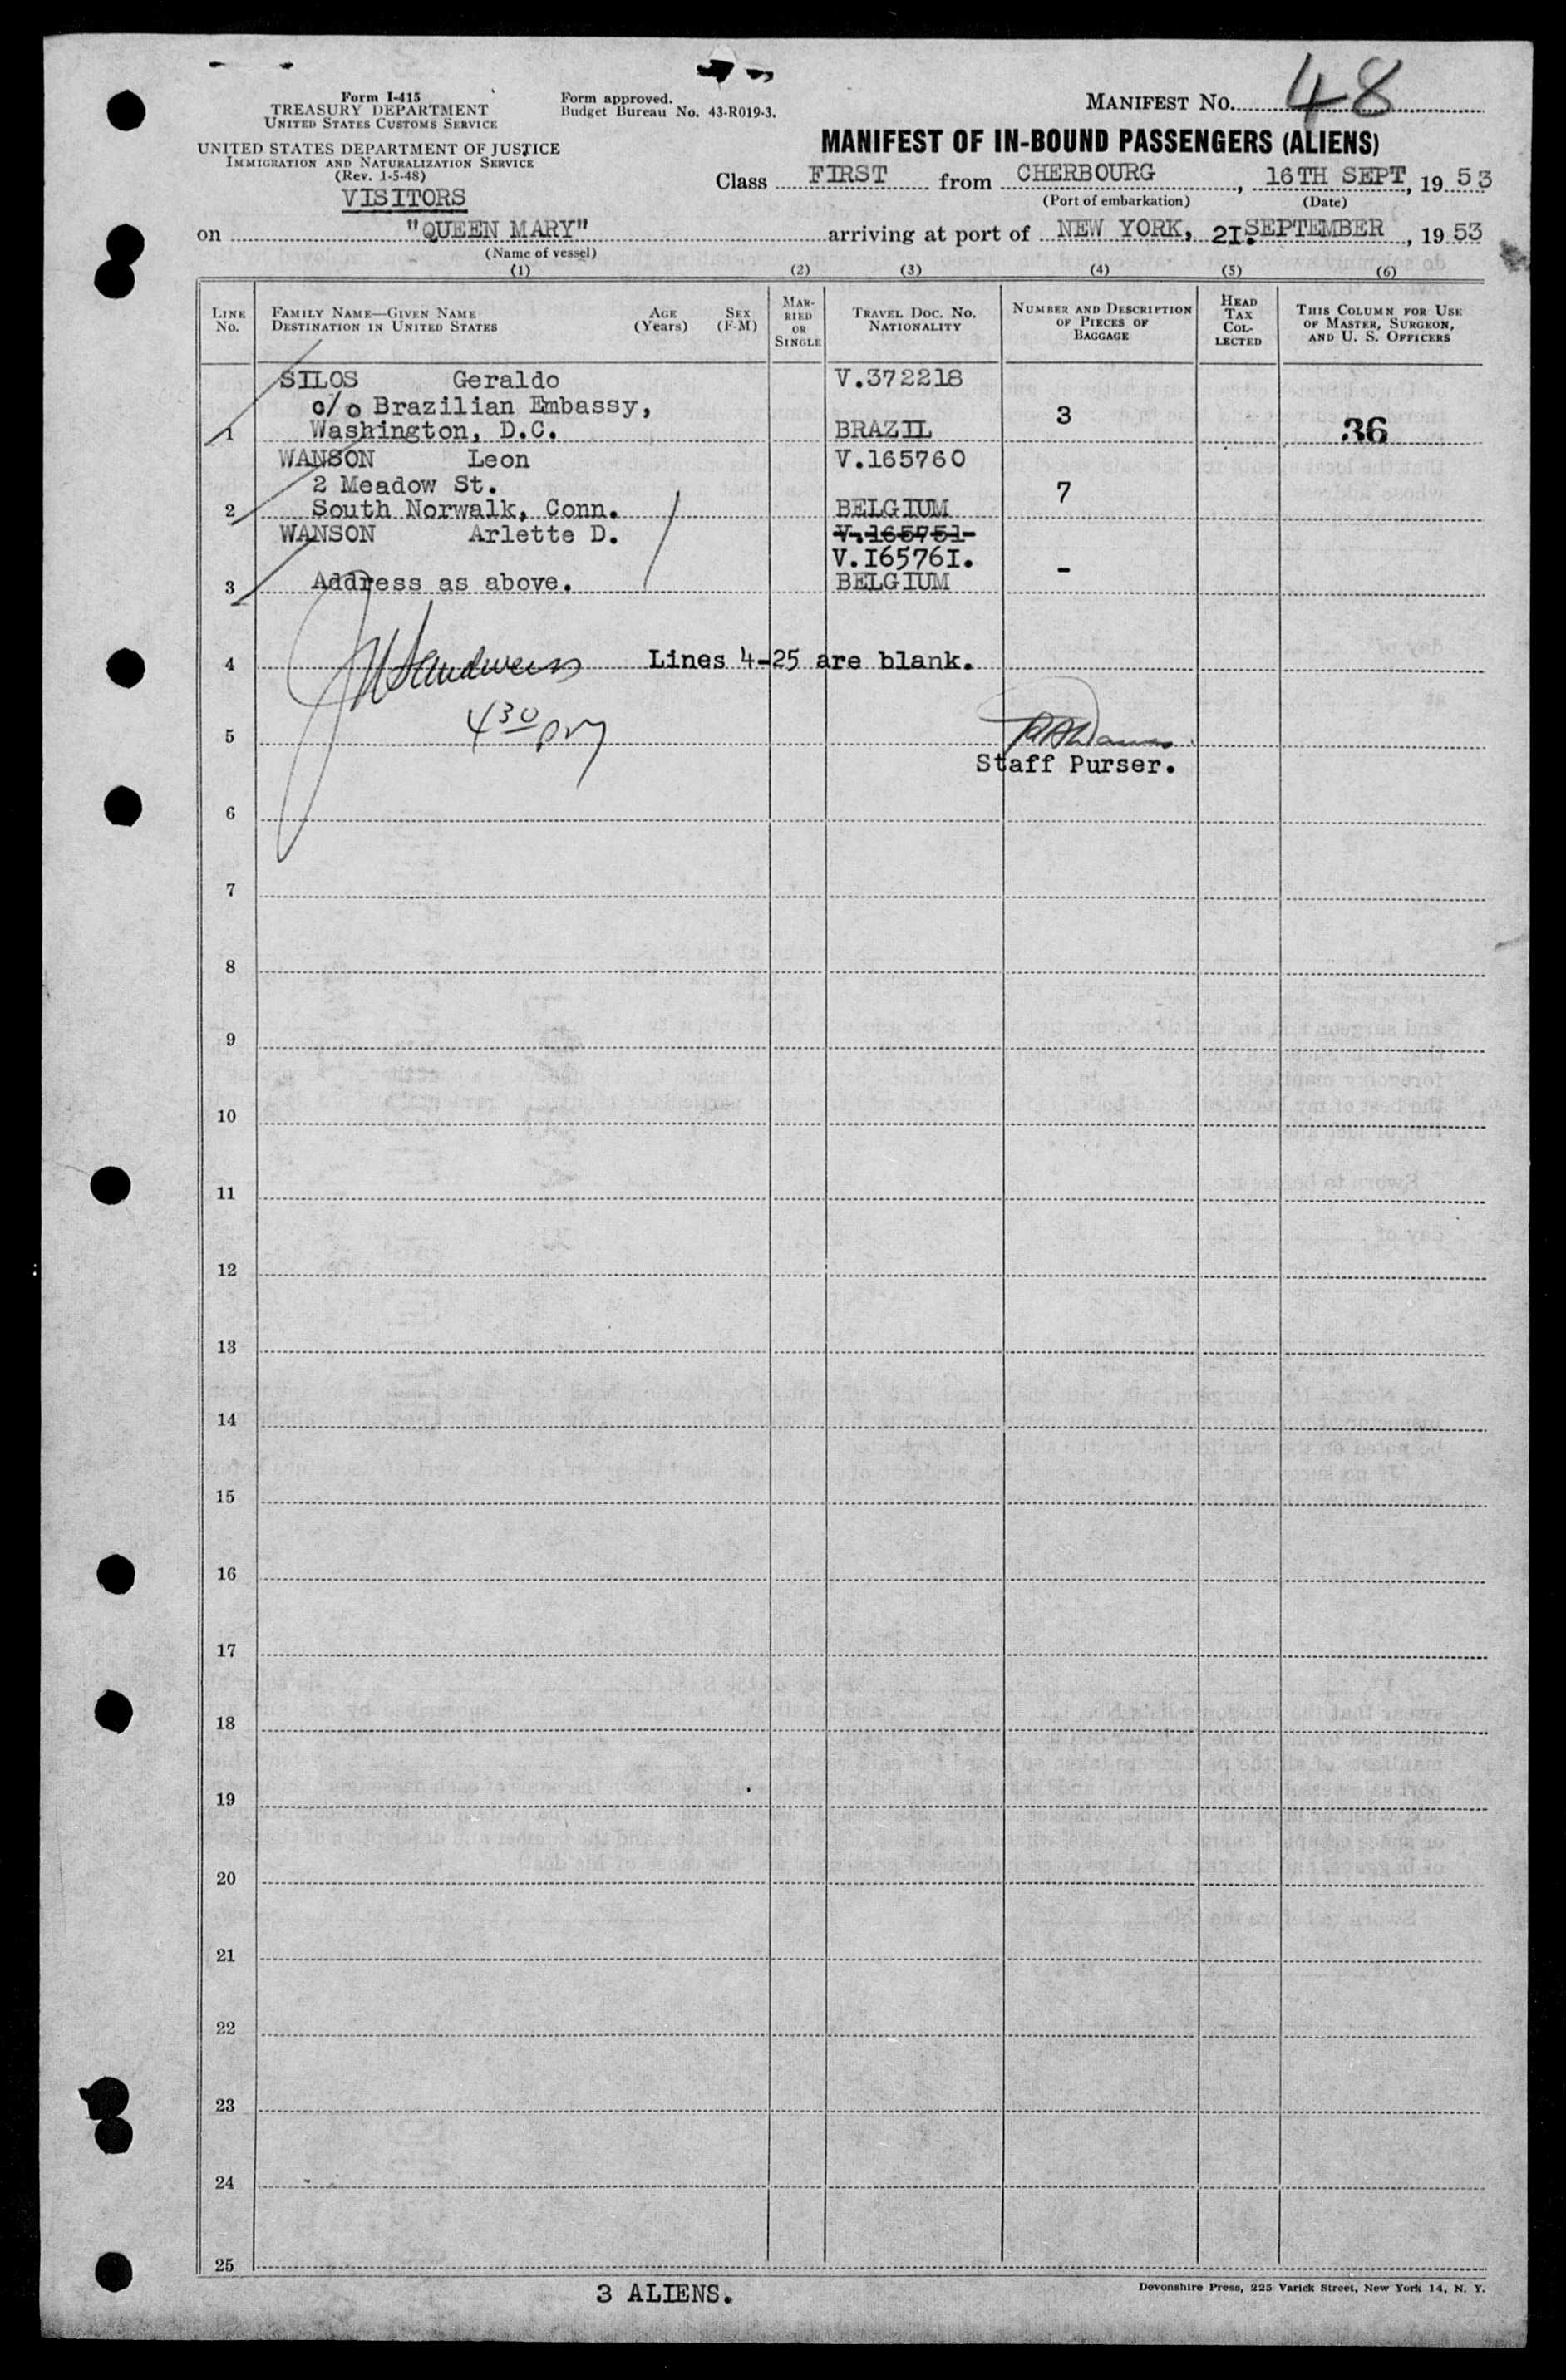 Form I-415
TREASURY DEPARTMENT
UNITED STATES CUSTOMS SERVICE
UNITED STATES DEPARTMENT OF JUSTICE
IMMIGRATION AND NATURALIZATION SERVICE
(Rev. 1-5-48)
VISITORS
Form approved.
Budget Bureau No. 43-R019-3.
MANIFEST No. 48
MANIFEST OF IN-BOUND PASSENGERS (ALIENS)
Class FIRST from CHERBOURG, 16TH SEPT, 19 53
(Port of embarkation) (Date)
on "QUEEN MARY" arriving at port of NEW YORK, 2I. SEPTEMBER, 19 53
(Name of vessel)
(1) (2) (3) (4) (5) (6)
LINE No.
FAMILY NAME—GIVEN NAME
DESTINATION IN UNITED STATES
AGE (Years)
SEX (F-M)
MARRIED OR SINGLE
TRAVEL DOC. NO.
NATIONALITY
NUMBER AND DESCRIPTION OF PIECES OF BAGGAGE
HEAD TAX COLLECTED
THIS COLUMN FOR USE OF MASTER, SURGEON, AND U. S. OFFICERS
SILOS Geraldo V.372218
c/o Brazilian Embassy, 3
1 Washington, D.C. BRAZIL 36
WANSON Leon V.165760
2 Meadow St. 7
2 South Norwalk, Conn. BELGIUM
WANSON Arlette D. V.165751
V.I6576I.
3 Address as above. BELGIUM -
4 Lines 4-25 are blank.
4 30 pm
5
Staff Purser.
6
7
8
9
10
11
12
13
14
15
16
17
18
19
20
21
22
23
24
25
3 ALIENS.
Devonshire Press, 225 Varick Street, New York 14, N. Y.